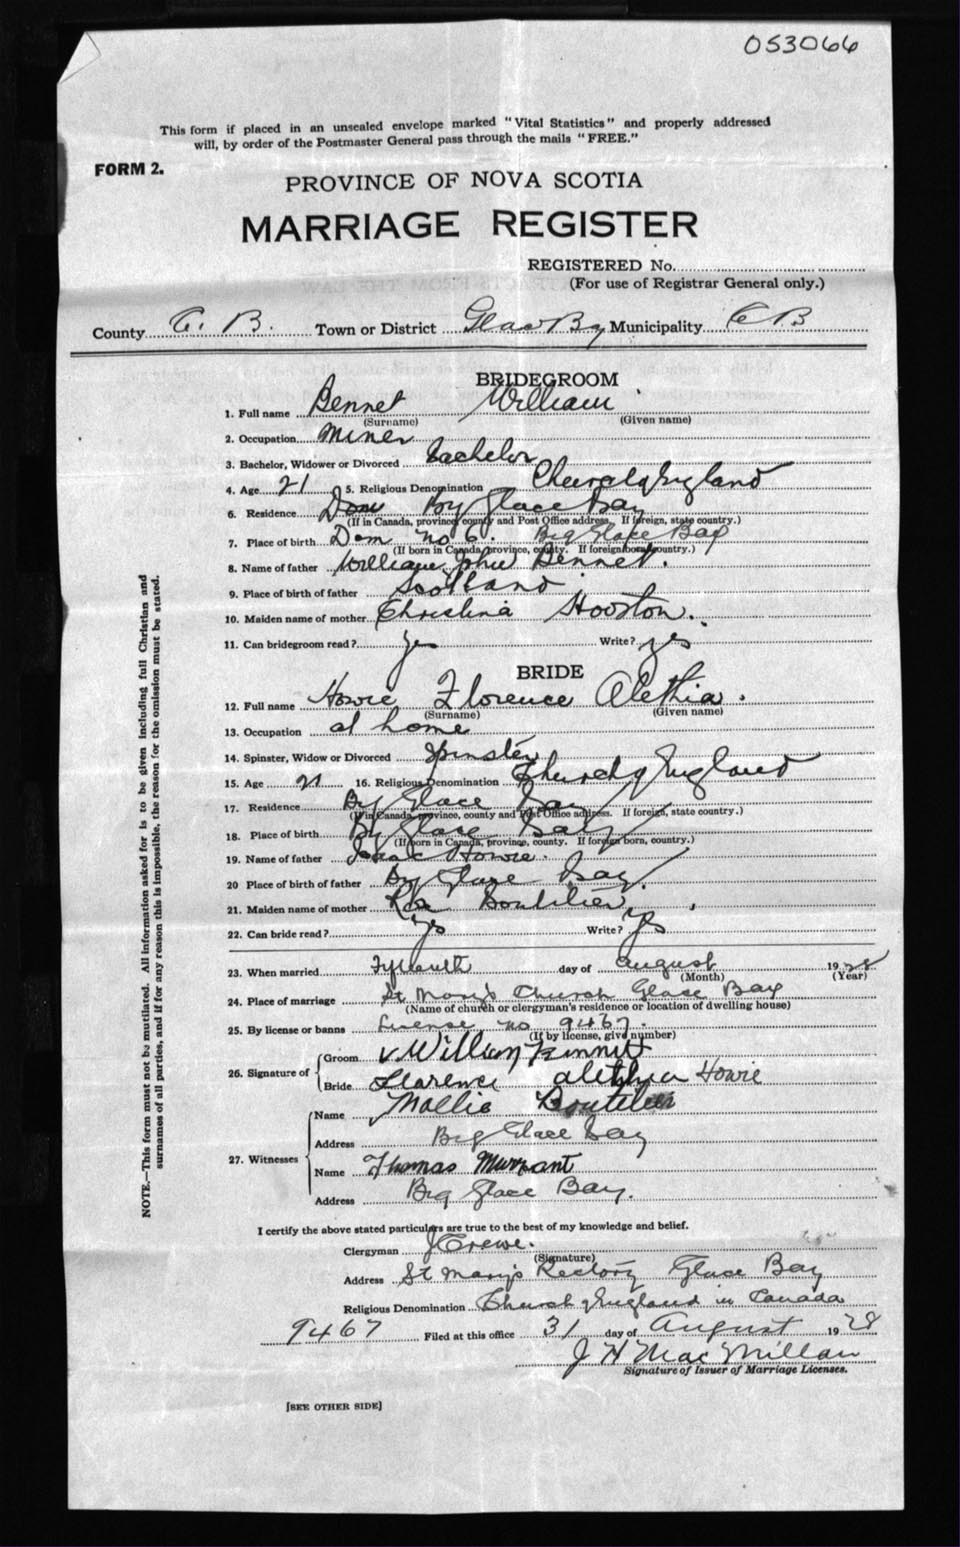 053066
This form if placed in an unsealed envelope marked "Vital Statistics" and properly addressed
will, by order of the Postmaster General pass through the mails "FREE."
FORM 2.
PROVINCE OF NOVA SCOTIA
MARRIAGE REGISTER
REGISTERED No.
(For use of Registrar General only.)
County C. B. Town or District Glace Bay Municipality C B
BRIDEGROOM
1. Full name Bennet William
(Surname) (Given name)
2. Occupation Miner
3. Bachelor, Widower or Divorced Bachelor
4. Age 21 5. Religious Denomination Church of England
6. Residence Dom By Glace Bay
(If in Canada, province, county and Post Office address. If foreign, state country.)
7. Place of birth Dom no 6. Big Glace Bay
(If born in Canada, province, county. If foreign born, country.)
8. Name of father William John Bennet.
9. Place of birth of father Scotland
10. Maiden name of mother Christina Hooston.
11. Can bridegroom read? yes Write? yes
BRIDE
12. Full name Howie Florence Alethia.
(Surname) (Given name)
13. Occupation at home
14. Spinster, Widow or Divorced Spinster
15. Age 21 16. Religious Denomination Church of England
17. Residence By Glace Bay
(If in Canada, province, county and Post Office address. If foreign, state country.)
18. Place of birth By Glace Bay
(If born in Canada, province, county. If foreign born, country.)
19. Name of father Isaac Howie.
20 Place of birth of father By Glace Bay.
21. Maiden name of mother Boutilier
22. Can bride read? yes Write? yes
23. When married Fifteenth day of August 1928
(Month) (Year)
24. Place of marriage St Mary's Church Glace Bay
(Name of church or clergyman's residence or location of dwelling house)
25. By license or banns License no 9467.
(If by license, give number)
26. Signature of
Groom William Bennett
Bride Florence Alethia Howie
27. Witnesses
Name Mollie Boutilier
Address Big Glace Bay
Name Thomas Murrant
Address Big Glace Bay.
I certify the above stated particulars are true to the best of my knowledge and belief.
Clergyman J Crewe.
(Signature)
Address St Mary's Rectory Glace Bay
Religious Denomination Church of England in Canada
9467 Filed at this office 31 day of August 1928
J H MacMillan
Signature of Issuer of Marriage Licenses.
[SEE OTHER SIDE]
NOTE.—This form must not be mutilated. All information asked for is to be given including full Christian and
surnames of all parties, and if for any reason this is impossible, the reason for the omission must be stated.